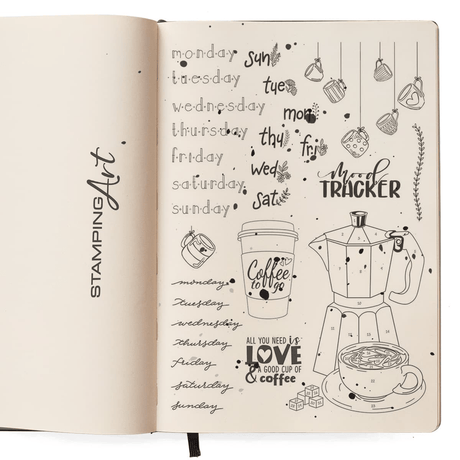 STAMPING Art
monday
tuesday
wednesday
thursday
friday
saturday
sunday
sun
tue
mon
thu
fri
wed
sat
mood
TRACKER
Coffee
to go
monday
tuesday
wednesday
thursday
friday
saturday
sunday
ALL YOU NEED is
LOVE
& A GOOD CUP OF
coffee